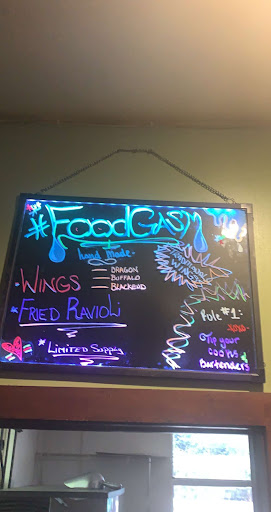 #FOODGASM
hand made
WINGS
DRAGON
BUFFALO
BLACKEND
FRIED RAVIOLI
LIMITED SUPPLY
Rule #1:
Tip your
cooks
Bartenders